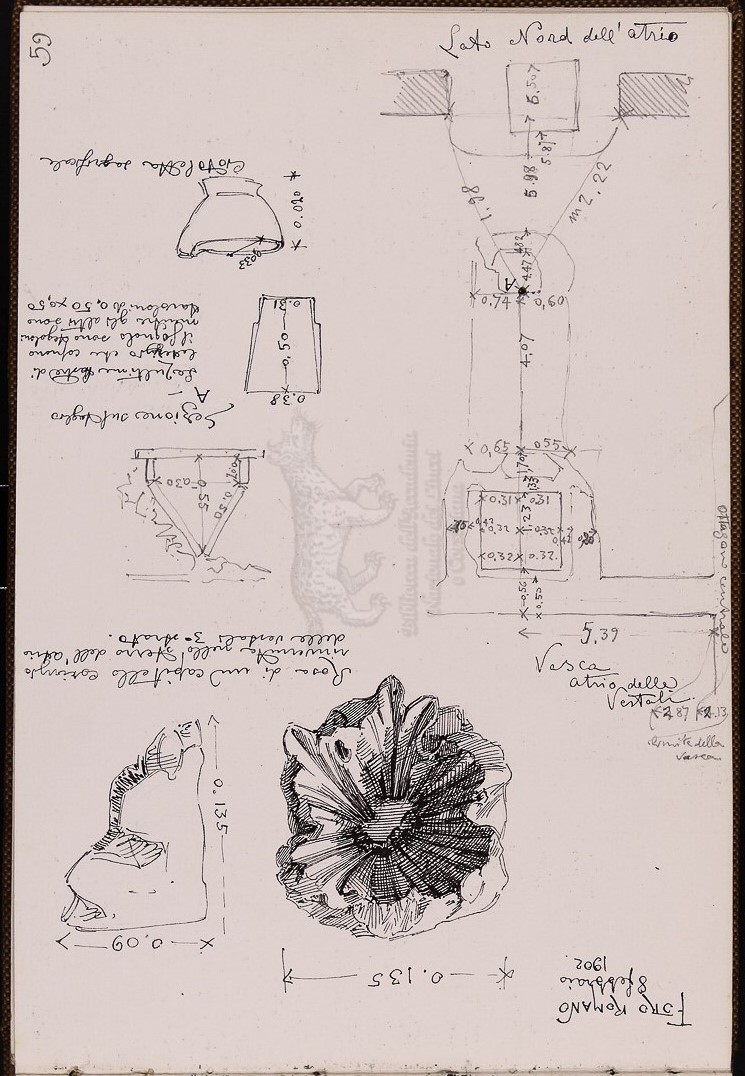 59
Lato Nord dell'atrio
5.507
5.98
5.87
1.98
m 2.22
4.47
A
0.74
0.60
4.07
0,65
0.55
1.70
1.33
1.23
0.31
0.31
0.42
0.32
0.32
0.42
0.32
0.32
0.56
0.50
5.39
Ottagono centrale
2.87
2.13
Vasca
atrio delle
Vestali
limite della
vasca
Ciotoletta sagrificale
0.020
0.033
A
Le ultime lastre di
che coprono
il fognolo sono tegoloni
mentre gli altri sono
tavoloni di 0,50 x 0,50
0.31
0.50
0.38
Sezione sul
0.30
0.07
0.55
0.50
Rosa di un capitello corinzio
rinvenuta nello sterro dell'atrio
delle vestali 3° strato.
0.135
0.09
0.135
FORO ROMANO
8 febbraio
1902.
Biblioteca dell'Accademia
Nazionale dei Lincei
e Corsiniana